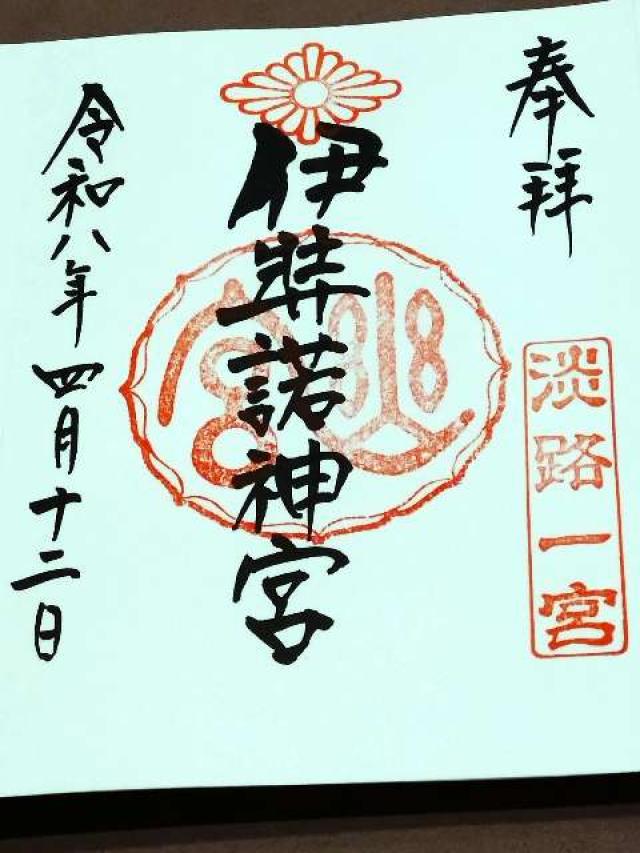 奉拝
淡路一宮
伊弉諾神宮
令和八年四月十二日